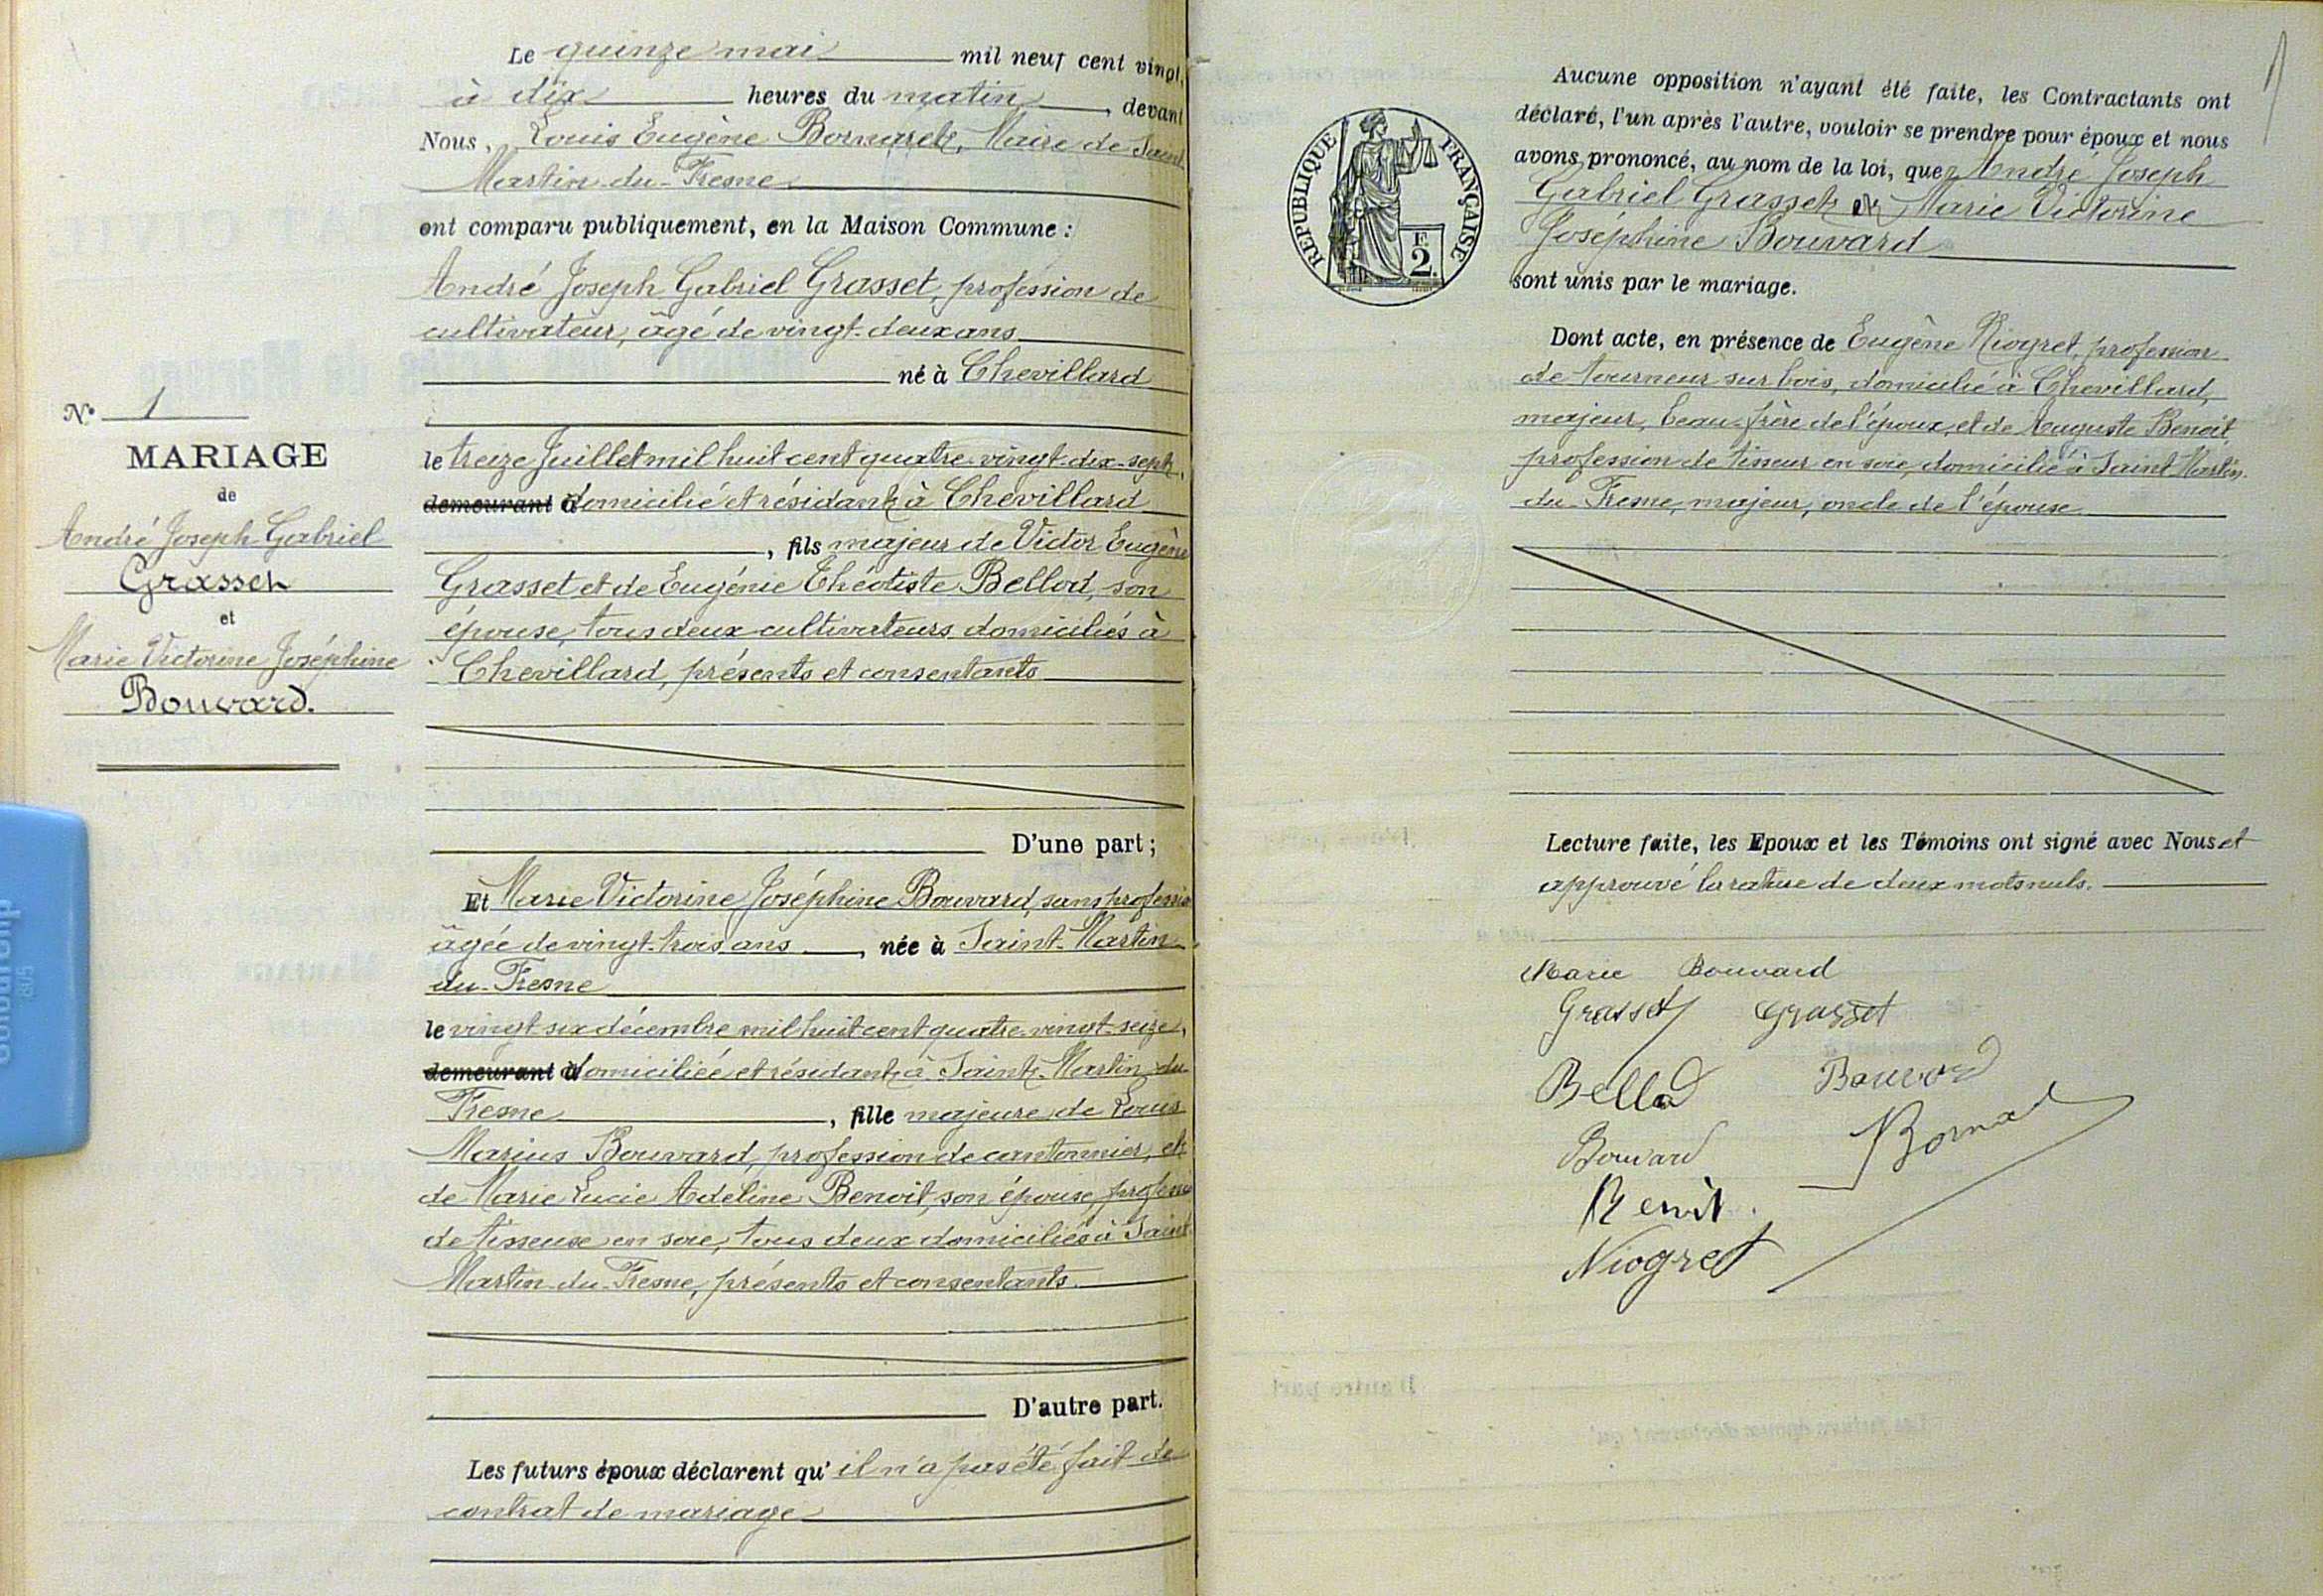 N° 1
MARIAGE
de
André Joseph Gabriel
Grasset
et
Marie Victorine Joséphine
Bouvard.
Le quinze mai mil neuf cent vingt,
à dix heures du matin, devant
Nous, Louis Eugène Bornaret, Maire de Saint
Martin-du-Fresne
ont comparu publiquement, en la Maison Commune :
André Joseph Gabriel Grasset, profession de
cultivateur, âgé de vingt-deux ans
né à Chevillard
le treize Juillet mil huit cent quatre-vingt-dix-sept,
demeurant à domicilié et résidant à Chevillard
, fils majeur de Victor Eugène
Grasset et de Eugénie Théotiste Bellod, son
épouse, tous deux cultivateurs domiciliés à
Chevillard, présents et consentants
D'une part ;
Et Marie Victorine Joséphine Bouvard, sans profession
âgée de vingt-trois ans, née à Saint-Martin
du-Fresne
le vingt six décembre mil huit cent quatre-vingt-seize,
demeurant à domiciliée et résidant à Saint-Martin du
Fresne, fille majeure de Louis
Marius Bouvard, profession de cantonnier, et
de Marie Lucie Adeline Benoit, son épouse, profession
de tisseuse en soie, tous deux domiciliés à Saint
Martin-du-Fresne, présents et consentants.
D'autre part.
Les futurs époux déclarent qu'il n'a pas été fait de
contrat de mariage
RÉPUBLIQUE FRANÇAISE
F.
2.
Aucune opposition n'ayant été faite, les Contractants ont
déclaré, l'un après l'autre, vouloir se prendre pour époux et nous
avons prononcé, au nom de la loi, que André Joseph
Gabriel Grasset et Marie Victorine
Joséphine Bouvard
sont unis par le mariage.
Dont acte, en présence de Eugène Niogret, profession
de tourneur sur bois, domicilié à Chevillard,
majeur, beau-frère de l'époux, et de Auguste Benoit,
profession de tisseur en soie, domicilié à Saint Martin-
du-Fresne, majeur, oncle de l'épouse
Lecture faite, les Epoux et les Témoins ont signé avec Nous et
approuvé la rature de deux mots nuls.
Marie Bouvard
Grasset Grasset
Bellod Bouvard
Bouvard
Benoit.
Niogret